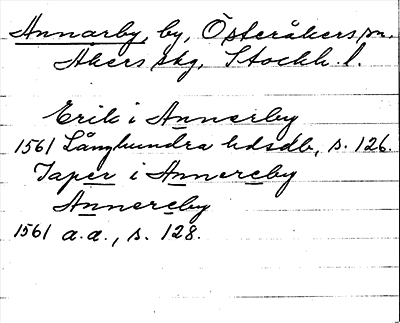 Annarby, by, Österåkers sn.
Åkers skg, Stockh. l.
Erik i Annerby
1561 Långhundra hdsdb, s. 126.
Japer i Annereby
Annereby
1561 a.a., s. 128.